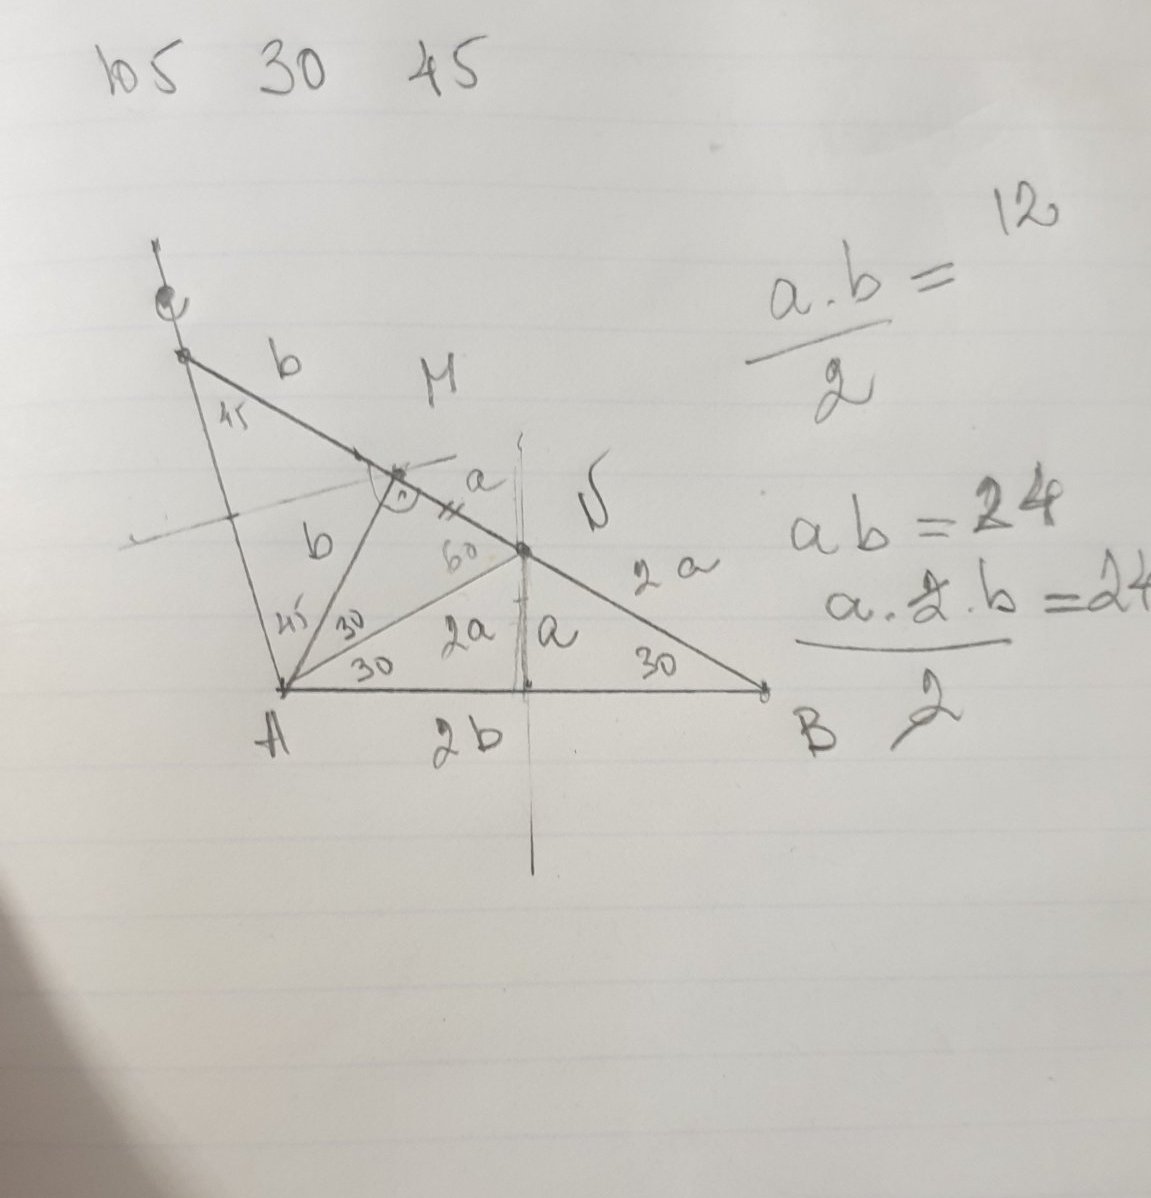 105 30 45
12
a.b =
2
C
b
M
45
a
N
ab = 24
b
60
2a
a.2.b = 24
45
30
2a
a
30
30
2
A
2b
B